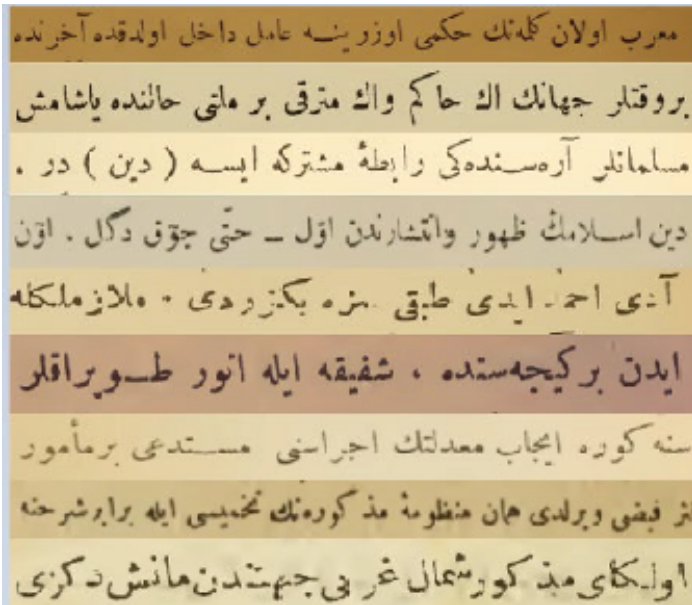 معرب اولان كلمه‌نك حكمى اوزرينه عامل داخل اولدقده آخرنده
بروقتلر جهانك اك حاكم واك مترقى بر ملتى حالنده ياشامش
مسلمانلر آره‌سنده‌كى رابطهٔ مشتركه ايسه ( دين ) در .
دين اسلامڭ ظهور وانتشارندن اوّل ــ حتّى جوّق دگل . اوّن
آدى احمد ايدى طبقى بزه بكزردى . ملازملكله
ايدن بركيجه‌سنده ، شفيقه ايله انور طوپراقلر
سنه كوره ايجاب معدلتك اجراسنى مستدعى برمأمور
فيضى ويرلدى همان منظومهٔ مذكوره‌نك تخميسى ايله برابر شرحنه
اولكاى مذكور شمال غربى جهتندن مانش دكزى